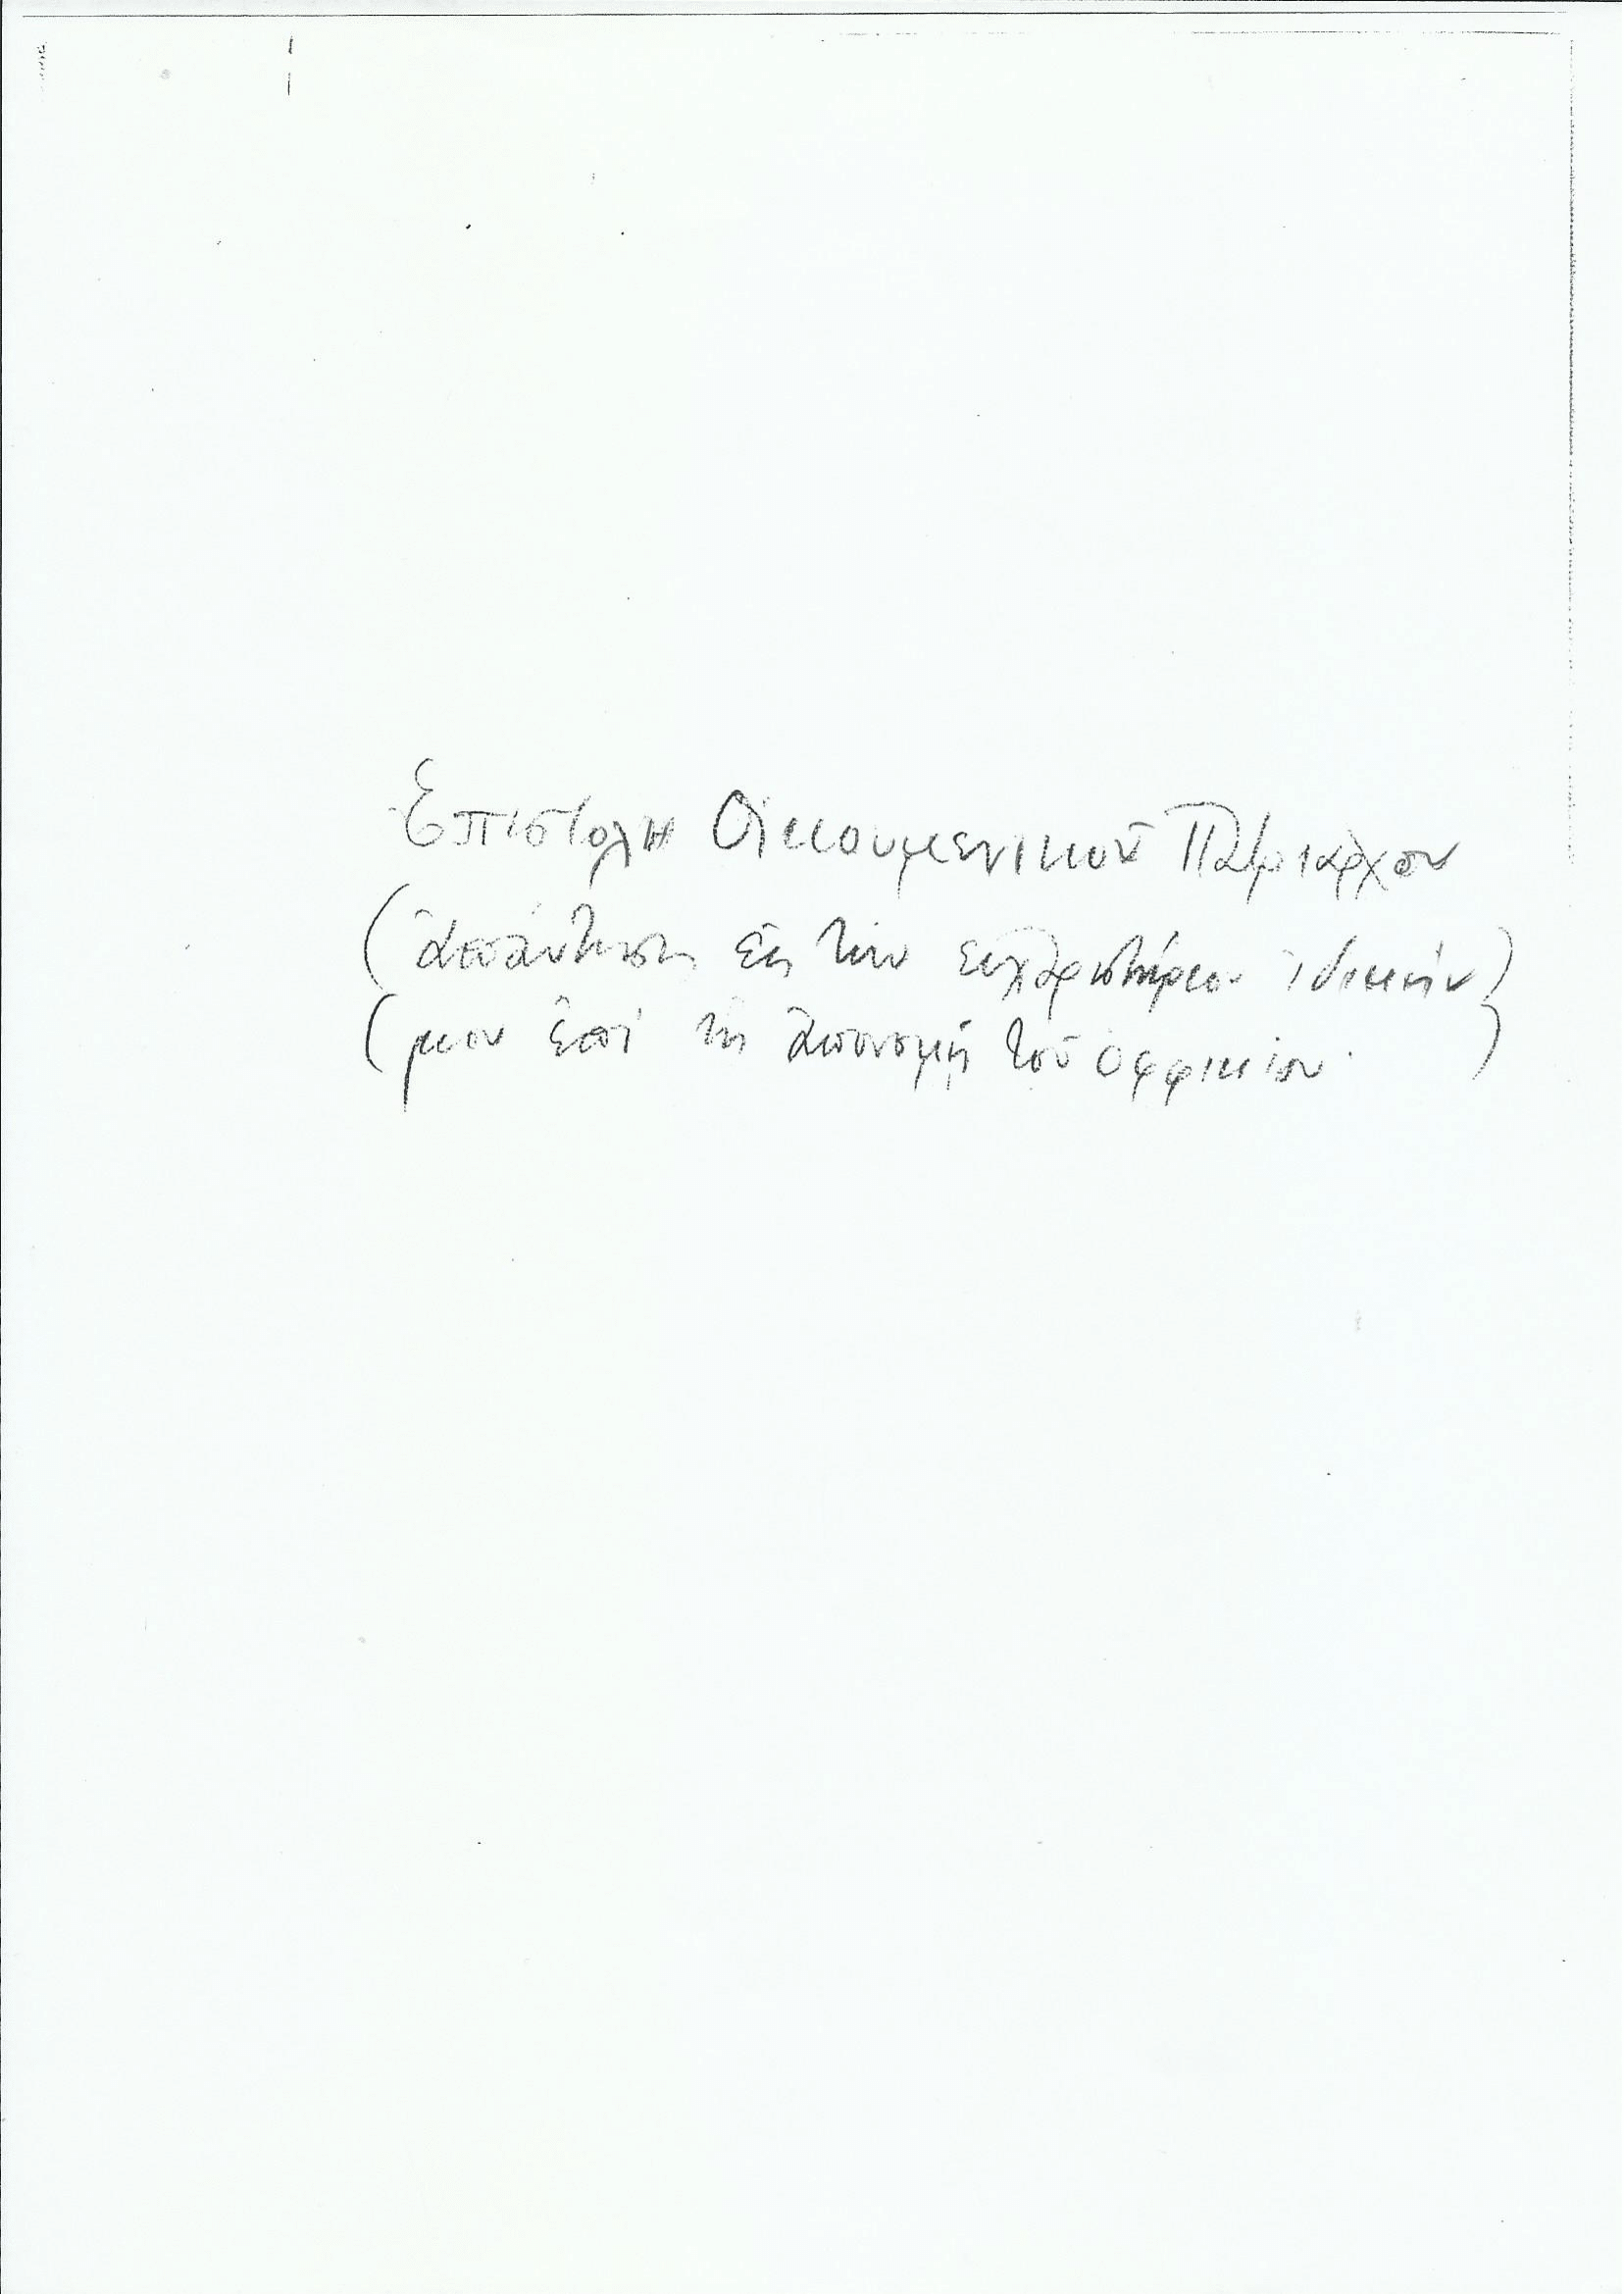 Ἐπιστολή Οἰκουμενικοῦ Πατριάρχου
(ἀπάντησις εἰς τήν εὐχαριστήριον ἰδικήν)
(μου ἐπί τῇ ἀπονομῇ τοῦ ὀφφικίου.)